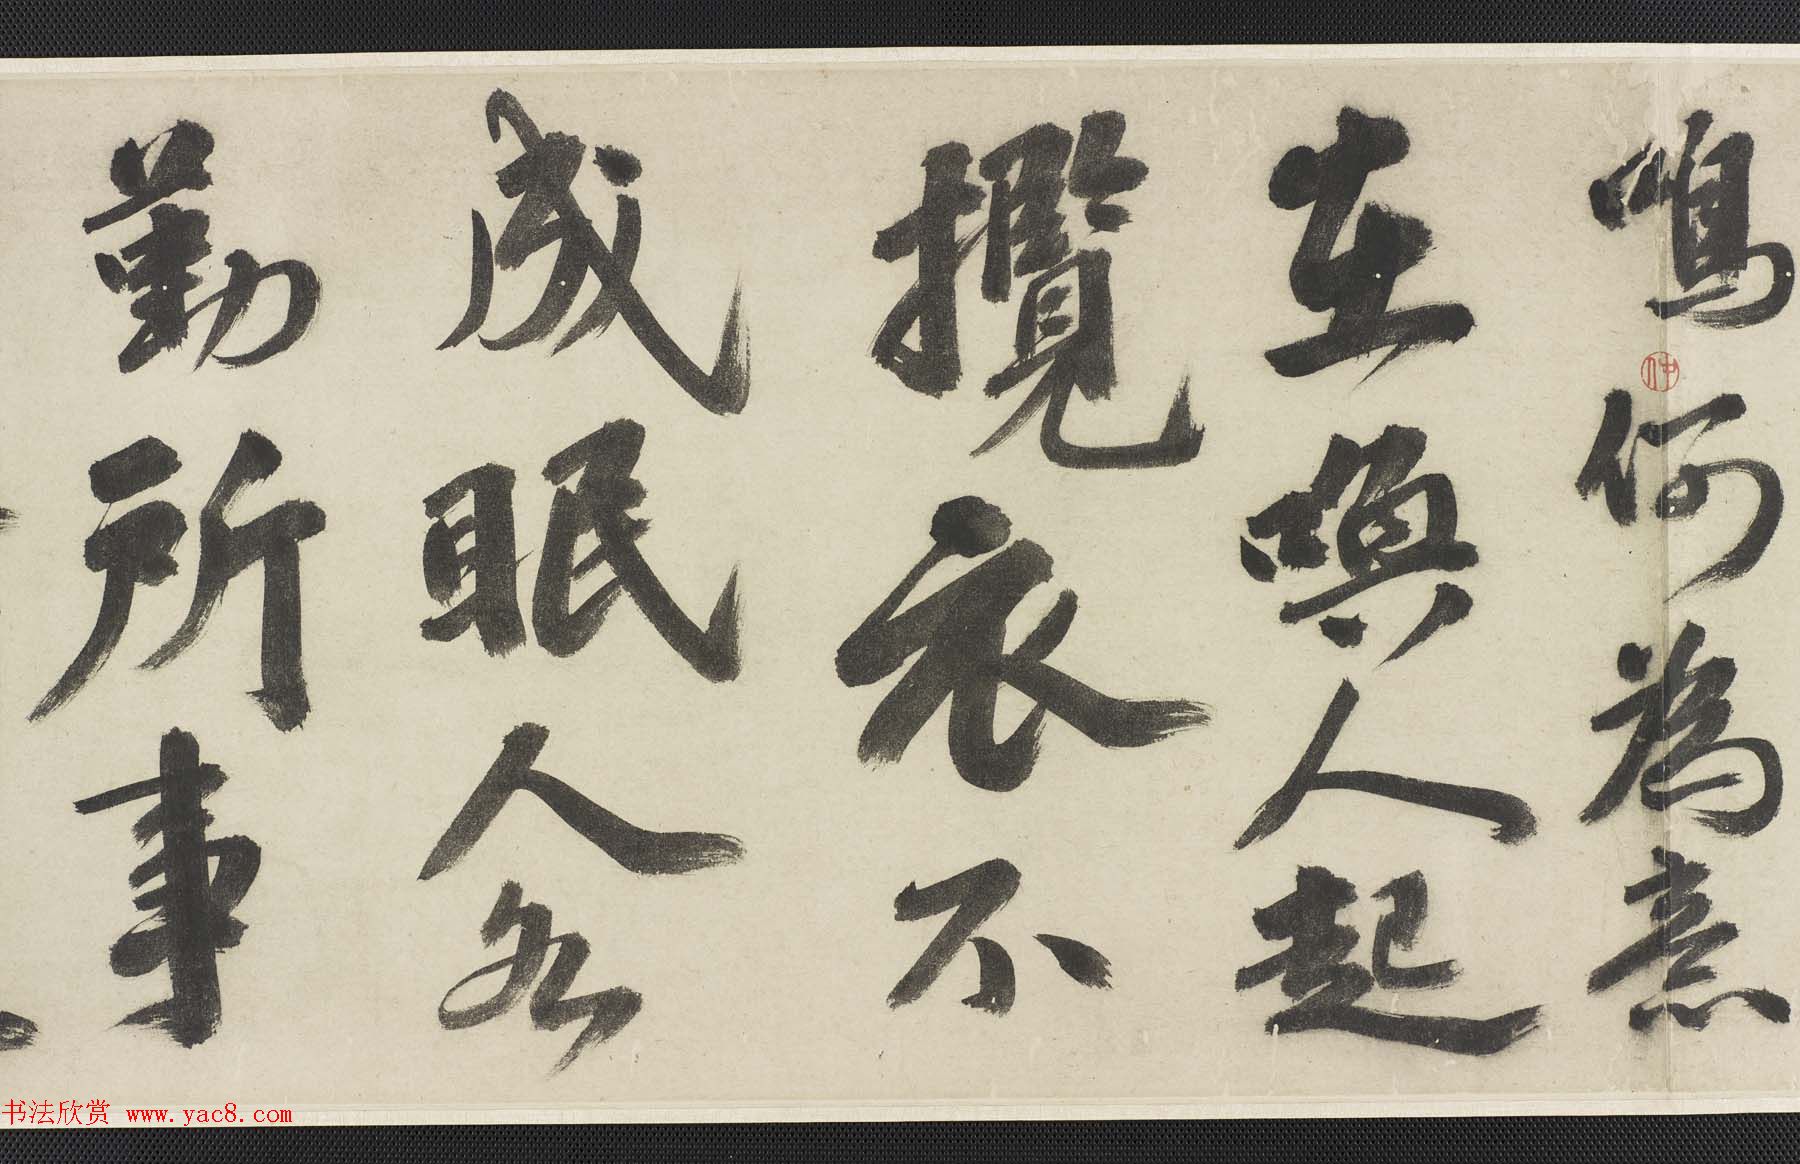 鳴何為意
在喚人起
攬衣不
成眠人各
勤所事
书法欣赏 www.yac8.com